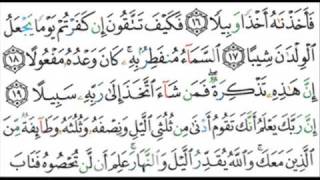 فَأَخَذْنَٰهُ أَخْذًا وَبِيلًا ١٦ فَكَيْفَ تَتَّقُونَ إِن كَفَرْتُمْ يَوْمًا يَجْعَلُ
ٱلْوِلْدَٰنَ شِيبًا ١٧ ٱلسَّمَآءُ مُنفَطِرٌۢ بِهِۦ ۚ كَانَ وَعْدُهُۥ مَفْعُولًا ١٨
إِنَّ هَٰذِهِۦ تَذْكِرَةٌ ۖ فَمَن شَآءَ ٱتَّخَذَ إِلَىٰ رَبِّهِۦ سَبِيلًا ١٩
إِنَّ رَبَّكَ يَعْلَمُ أَنَّكَ تَقُومُ أَدْنَىٰ مِن ثُلُثَىِ ٱلَّيْلِ وَنِصْفَهُۥ وَثُلُثَهُۥ وَطَآئِفَةٌ مِّنَ
ٱلَّذِينَ مَعَكَ ۚ وَٱللَّهُ يُقَدِّرُ ٱلَّيْلَ وَٱلنَّهَارَ ۚ عَلِمَ أَن لَّن تُحْصُوهُ فَتَابَ